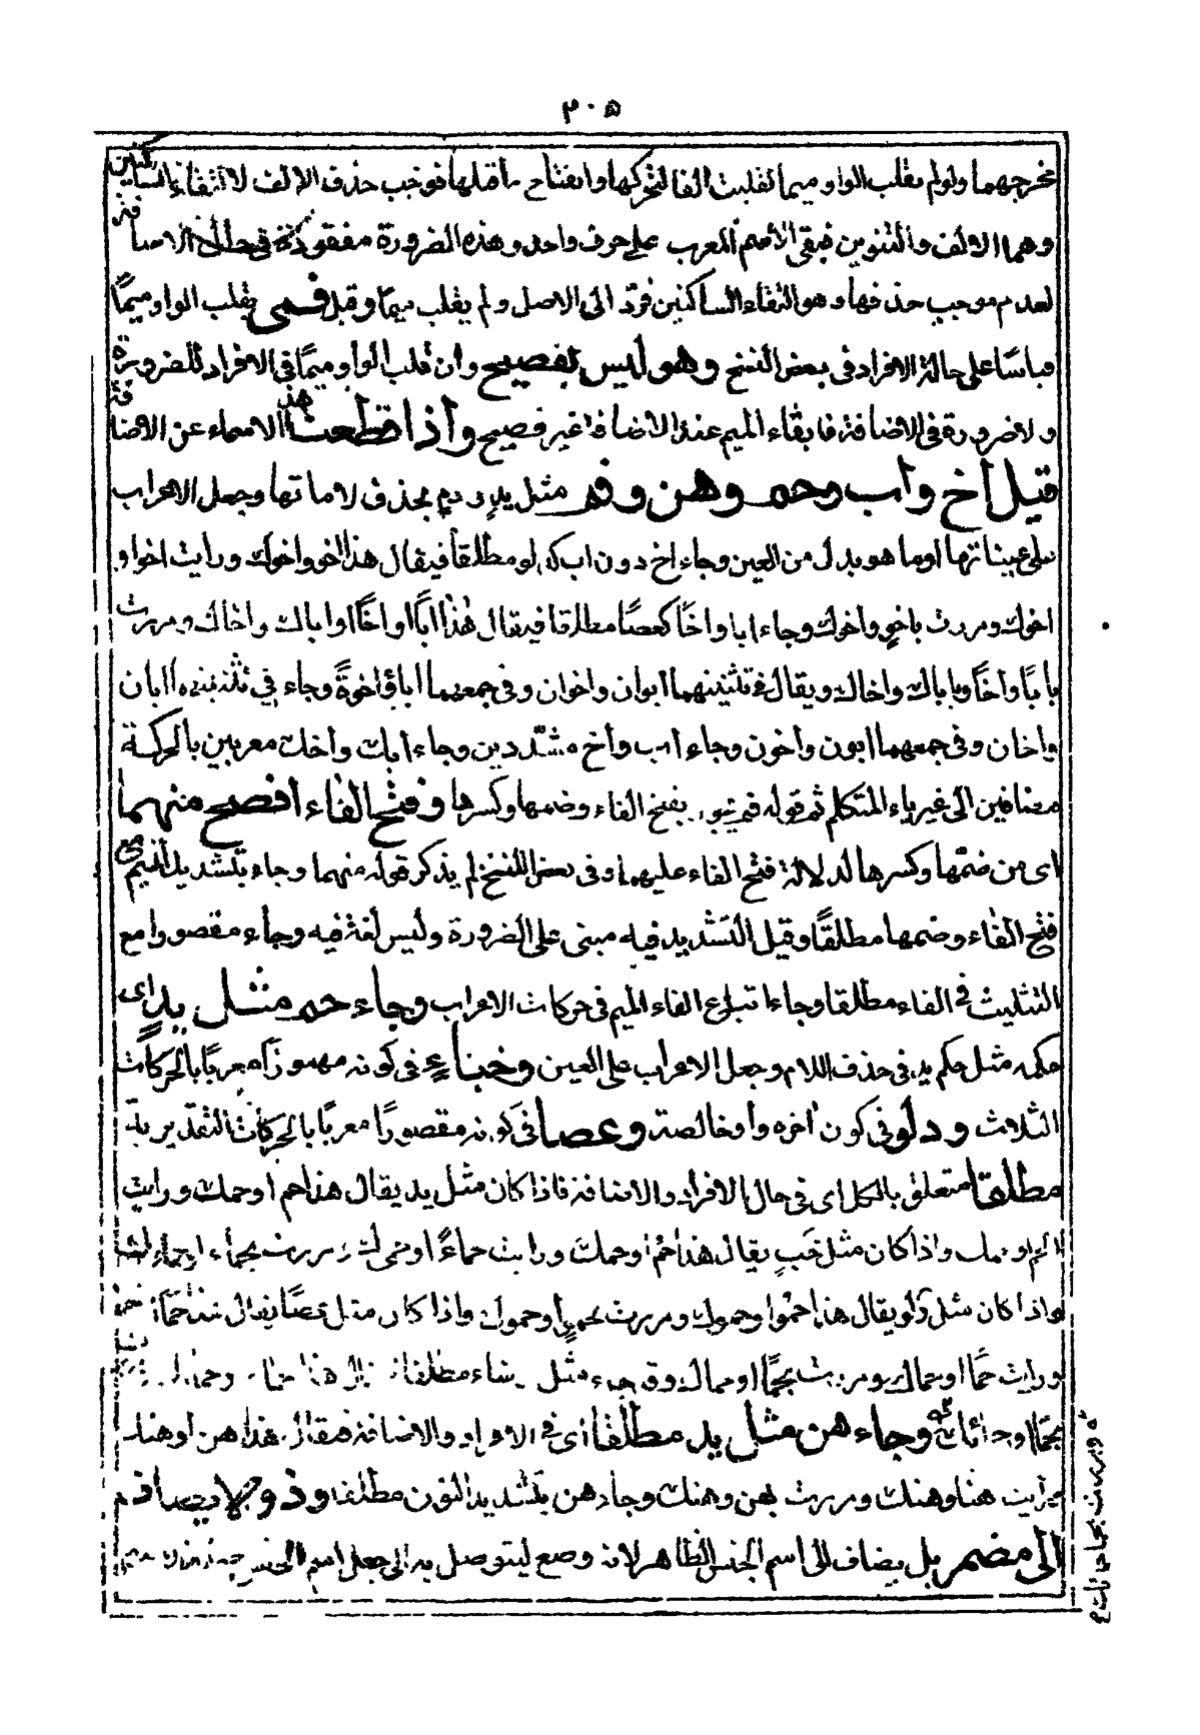 ٣٠٥
مخرجهما ولو لم يقلب الواو ميما لقلبت الفا لتحركها وانفتاح ما قبلها فوجب حذف الالف لالتقاء الساكنين
وهما الالف والتنوين فبقى الاسم المعرب على حرف واحد وهذه الضرورة مفقودة فى حال الاضافة
لعدم موجب حذفها وهو التقاء الساكنين فردّ الى الاصل ولم يقلب ميمًا وقيل فمى بقلب الواو ميمًا
قياسًا على حالة الافراد فى بعض النسخ وهو ليس بفصيح وان قلب الواو ميمًا فى الافراد للضرورة
ولا ضرورة فى الاضافة فابقاء الميم عند الاضافة غير فصيح واذا قطعت هذه الاسماء عن الاضافة
قيل اخ واب وحم وهن وفم مثل يد ودم بحذف لاماتها وجعل الاعراب
على عيناتها او ما هو بدل من العين وجاء اخ دون اب كدلو مطلقا فيقال هذا اخو واخوك ورايت اخوا و
اخوك ومررت باخو واخوك وجاء ابا واخًا كعصًا مطلقا فيقال هذا ابًا او اخًا او اباك واخاك ومررت
بابًا واخًا وباباك واخاك ويقال فى تثنيتهما ابوان واخوان وفى جمعهما اباؤ اخوةً وجاء فى تثنيته ابان
واخان وفى جمعهما ابون واخون وجاء اب واخ مشددين وجاء ابك واخك معربين بالحركة
مضافين الى غير ياء المتكلم ثم قوله فم بفتح الفاء وضمها وكسرها وفتح الفاء افصح منهما
اى من ضمّها وكسرها لدلالة فتح الفاء عليهما وفى بعض النسخ لم يذكر قوله منهما وجاء بتشديد الميم مع
فتح الفاء وضمها مطلقًا وقيل التشديد فيه مبنى على الضرورة وليس لغة فيه وجاء مقصورا مع
التثليث فى الفاء مطلقا وجاء اتباع الفاء الميم فى حركات الاعراب وجاء حم مثل يد اى
حكمه مثل حكم يد فى حذف اللام وجعل الاعراب على العين وخباء فى كونه مهموزا معربًا بالحركات
الثلاث ودلو فى كون اخره واوا خالصة وعصا فى كونه مقصورًا معربًا بالحركات التقديرية
مطلقا متعلق بالكل اى فى حال الافراد والاضافة فاذا كان مثل يد يقال هذا حم او حمك ورايت
واذا كان مثل خبء يقال هذا حمؤ او حمك ورايت حماءً او مررت بحماء
واذا كان مثل دلو يقال هذا حموا وحموك ومررت بحموٍ او حموك واذا كان مثل عصًا يقال هذا حمًا
ورايت حمًا او حماك ومررت بحمًا او حماك وقد جاء مثل رشاء مطلقا
وجاء هن مثل يد مطلقا اى فى الافراد والاضافة فيقال هذا هن او هنك
ورايت هنا وهنك ومررت بهن وهنك وجاء هن بتشديد النون مطلقا وذو لا يضاف
الى مضمر بل يضاف الى اسم الجنس الظاهر لانه وضع ليتوصل به الى جعل اسم الجنس